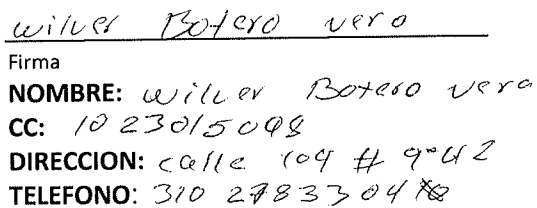 wilver Botero vera
Firma
NOMBRE: wilver Botero vera
CC: 1023015098
DIRECCION: calle 109 # 9-42
TELEFONO: 310 2783304